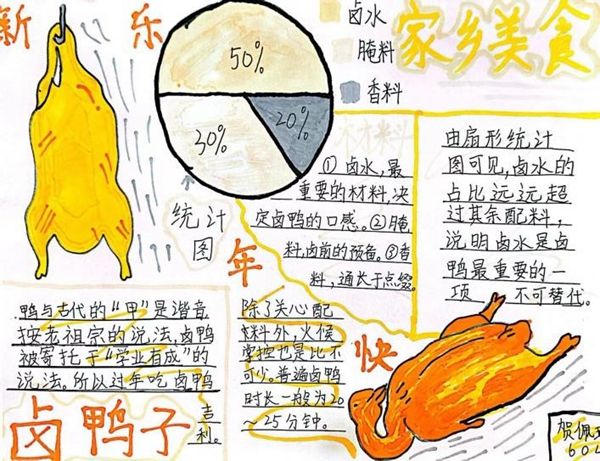 新年快乐
家乡美食
卤水
腌料
香料
50%
30%
20%
统计
图
材料
①卤水,最
重要的材料,决
定卤鸭的口感。②腌
料,卤前的预备。③香
料,通长于点缀。
由扇形统计
图可见,卤水的
占比远远超
过其余配料,
说明卤水是卤
鸭最重要的一
项 不可替代。
鸭与古代的“甲”是谐音
按老祖宗的说法,卤鸭
被寄托于“学业有成”的
说法。所以过年吃卤鸭
吉
利。
除了关心配
料外,火候
掌控也是比不
可少。普遍卤鸭
时长一般为20
~25分钟。
卤鸭子
贺佩
604